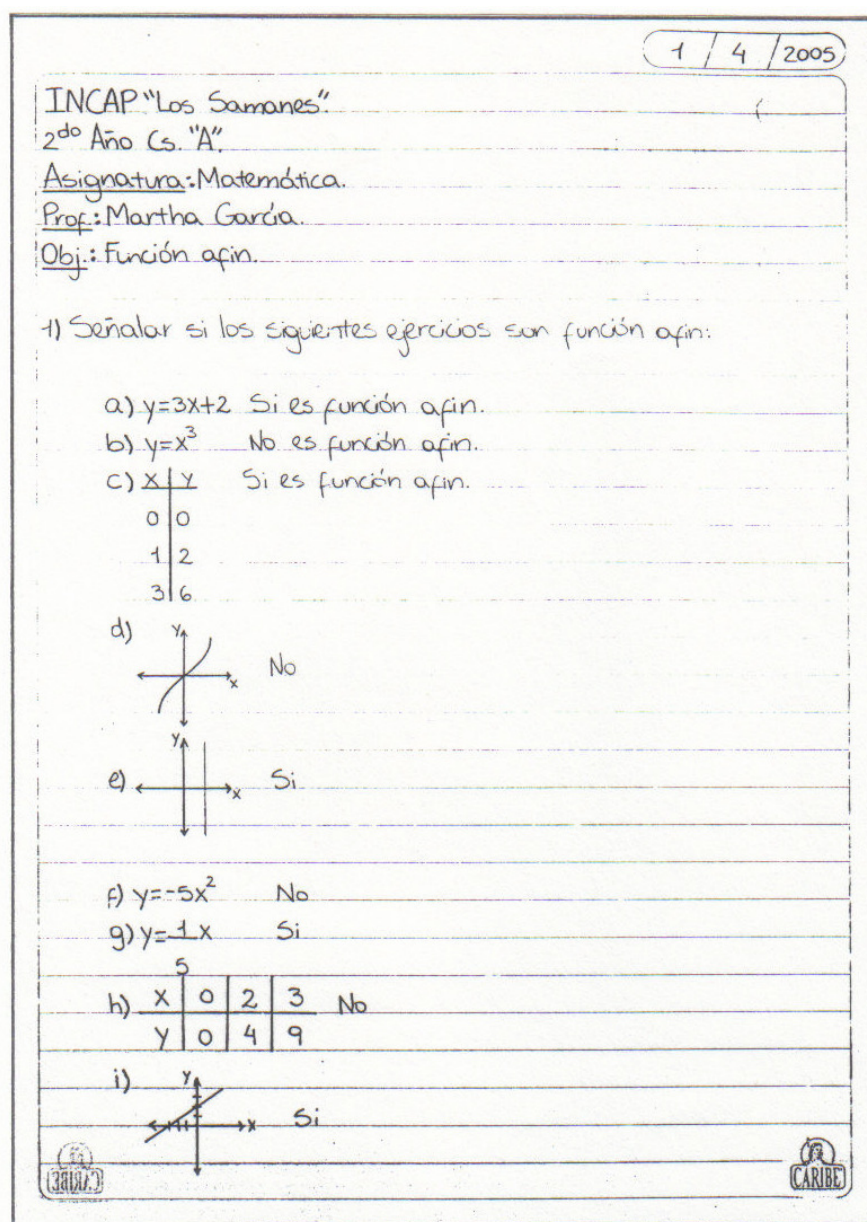 1 / 4 / 2005
INCAP "Los Samanes".
2do Año Cs. "A".
Asignatura: Matemática.
Prof.: Martha García.
Obj.: Función afin.
1) Señalar si los siguientes ejercicios son función afin:
a) y=3x+2 Si es función afin.
b) y=x³ No es función afin.
c) X Y Si es función afin.
0 0
1 2
3 6
d) Y X No
e) Y X Si
f) y=-5x² No
g) y=1/5 x Si
h) X 0 2 3 No
Y 0 4 9
i) Y X Si
CARIBE
CARIBE